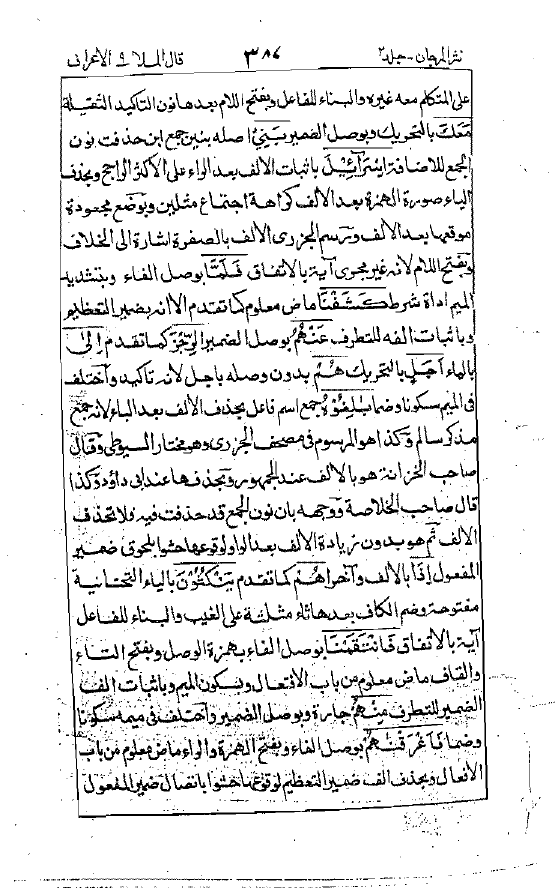 نثر المرجان - جلد ٢ ٣٨٧ قال الملا ٩ الاعراف
على المتكلم معه غيره والبناء للفاعل وبفتح اللام بعدها نون التاكيد الثقيلة
مَعَكَ بالتحريك وبوصل الضمير بَنِيْ اصله بنين جمع ابن حذفت نون
الجمع للاضافة اِسْرَآئِيْلَ باثبات الألف بعد الراء على الأكثر الراجح وبحذف
الياء صورة الهمزة بعد الألف كراهة اجتماع مثلين وبوضع مجعودة
موقعها بعد الألف ورسم الجزرى الألف بالصفرة اشارة الى الخلاف
وبفتح اللام لانه غير مجرى آية بالاتفاق فَلَمَّا بوصل الفاء وبتشديد
الميم اداة شرط كَشَفْنَا ماض معلوم كما تقدم الا انه بضمير التعظيم
وباثبات الفه للتطرف عَنْهُمُ بوصل الضمير الرِّجْزَ كما تقدم اِلٰى
بالياء اَجَلٍ بالتحريك هُمْ بدون وصله باجل لانه تاكيد واختلف
فى الميم سكونا وضما بٰلِغُوْهُ جمع اسم فاعل بحذف الألف بعد الباء لانه جمع
مذكر سالم وكذا هو المرسوم فى مصحف الجزرى وهو مختار السيوطى وقال
صاحب الخزانة هو بالألف عند الجمهور وبحذفها عند ابى داؤد وكذا
قال صاحب الخلاصة ووجهه بان نون الجمع قد حذفت فيه فلا تحذف
الألف ثم هو بدون زيادة الألف بعد الواو لوقوعها حشوا بلحوق ضمير
المفعول اِذَا بالألف وآخرا هُمْ كما تقدم يَنْكُثُوْنَ بالياء التحتانية
مفتوحة وضم الكاف بعدها ثاء مثلثة على الغيب والبناء للفاعل
آية بالاتفاق فَانْتَقَمْنَا بوصل الفاء بهمزة الوصل وبفتح التاء
والقاف ماض معلوم من باب الافتعال وبسكون الميم وباثبات الف
الضمير للتطرف مِنْهُمْ جارة وبوصل الضمير واختلف فى ميمه سكونا
وضما فَاَغْرَقْنٰهُمْ بوصل الفاء وبفتح الهمزة والراء ماض معلوم من باب
الافعال وبحذف الف ضمير التعظيم لوقوعها حشوا باتصال ضمير المفعول